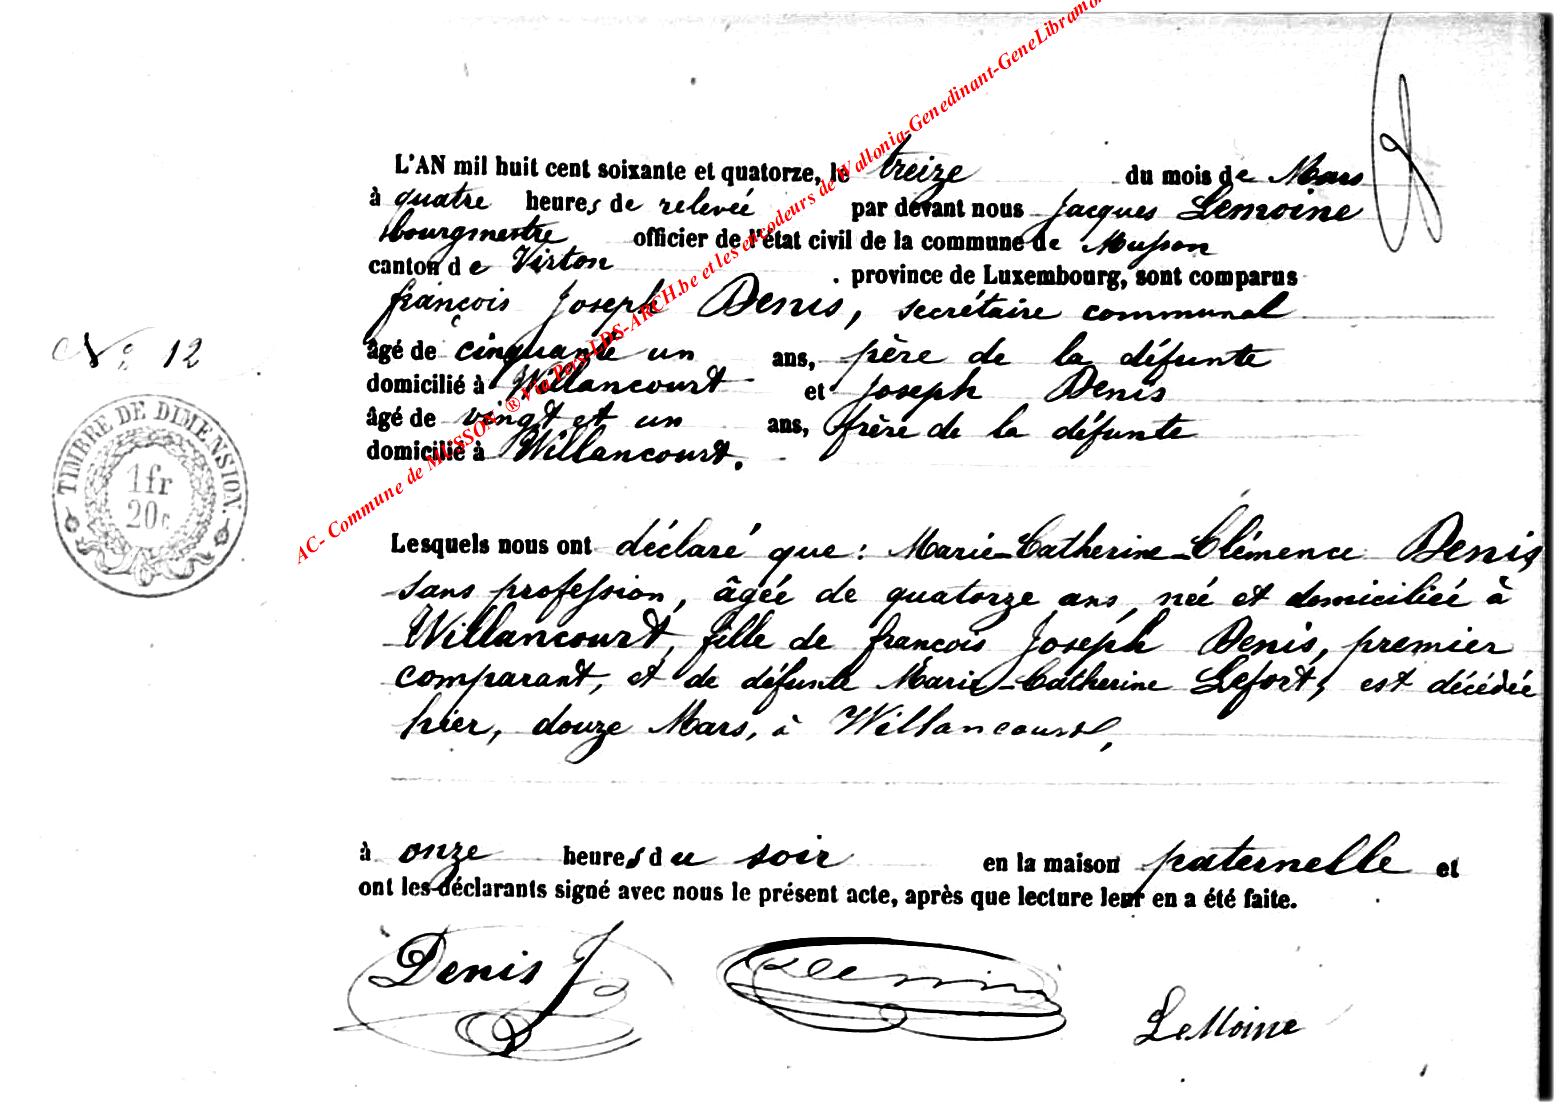 L'AN mil huit cent soixante et quatorze, le treize du mois de Mars
à quatre heures de relevée par devant nous Jacques Lemoine
bourgmestre officier de l'état civil de la commune de Musson
canton de Virton province de Luxembourg, sont comparus
françois Joseph Denis, secrétaire communal
N° 12
âgé de cinquante un ans, père de la défunte
domicilié à Willancourt et Joseph Denis
âgé de vingt et un ans, frère de la défunte
domicilié à Willancourt.
TIMBRE DE DIMENSION.
1 fr
20 c
AC- Commune de MUSSON ® Via Pers-LDS-ARCH.be et les encodeurs de Wallonia-Genedinant-GeneLibramo
Lesquels nous ont déclaré que : Marie-Catherine-Clémence Denis,
sans profession, âgée de quatorze ans, née et domiciliée à
Willancourt, fille de françois Joseph Denis, premier
comparant, et de défunte Marie-Catherine Lefort, est décédée
hier, douze Mars, à Willancourt,
à onze heures du soir en la maison paternelle et
ont les déclarants signé avec nous le présent acte, après que lecture leur en a été faite.
Denis J
LeMoine